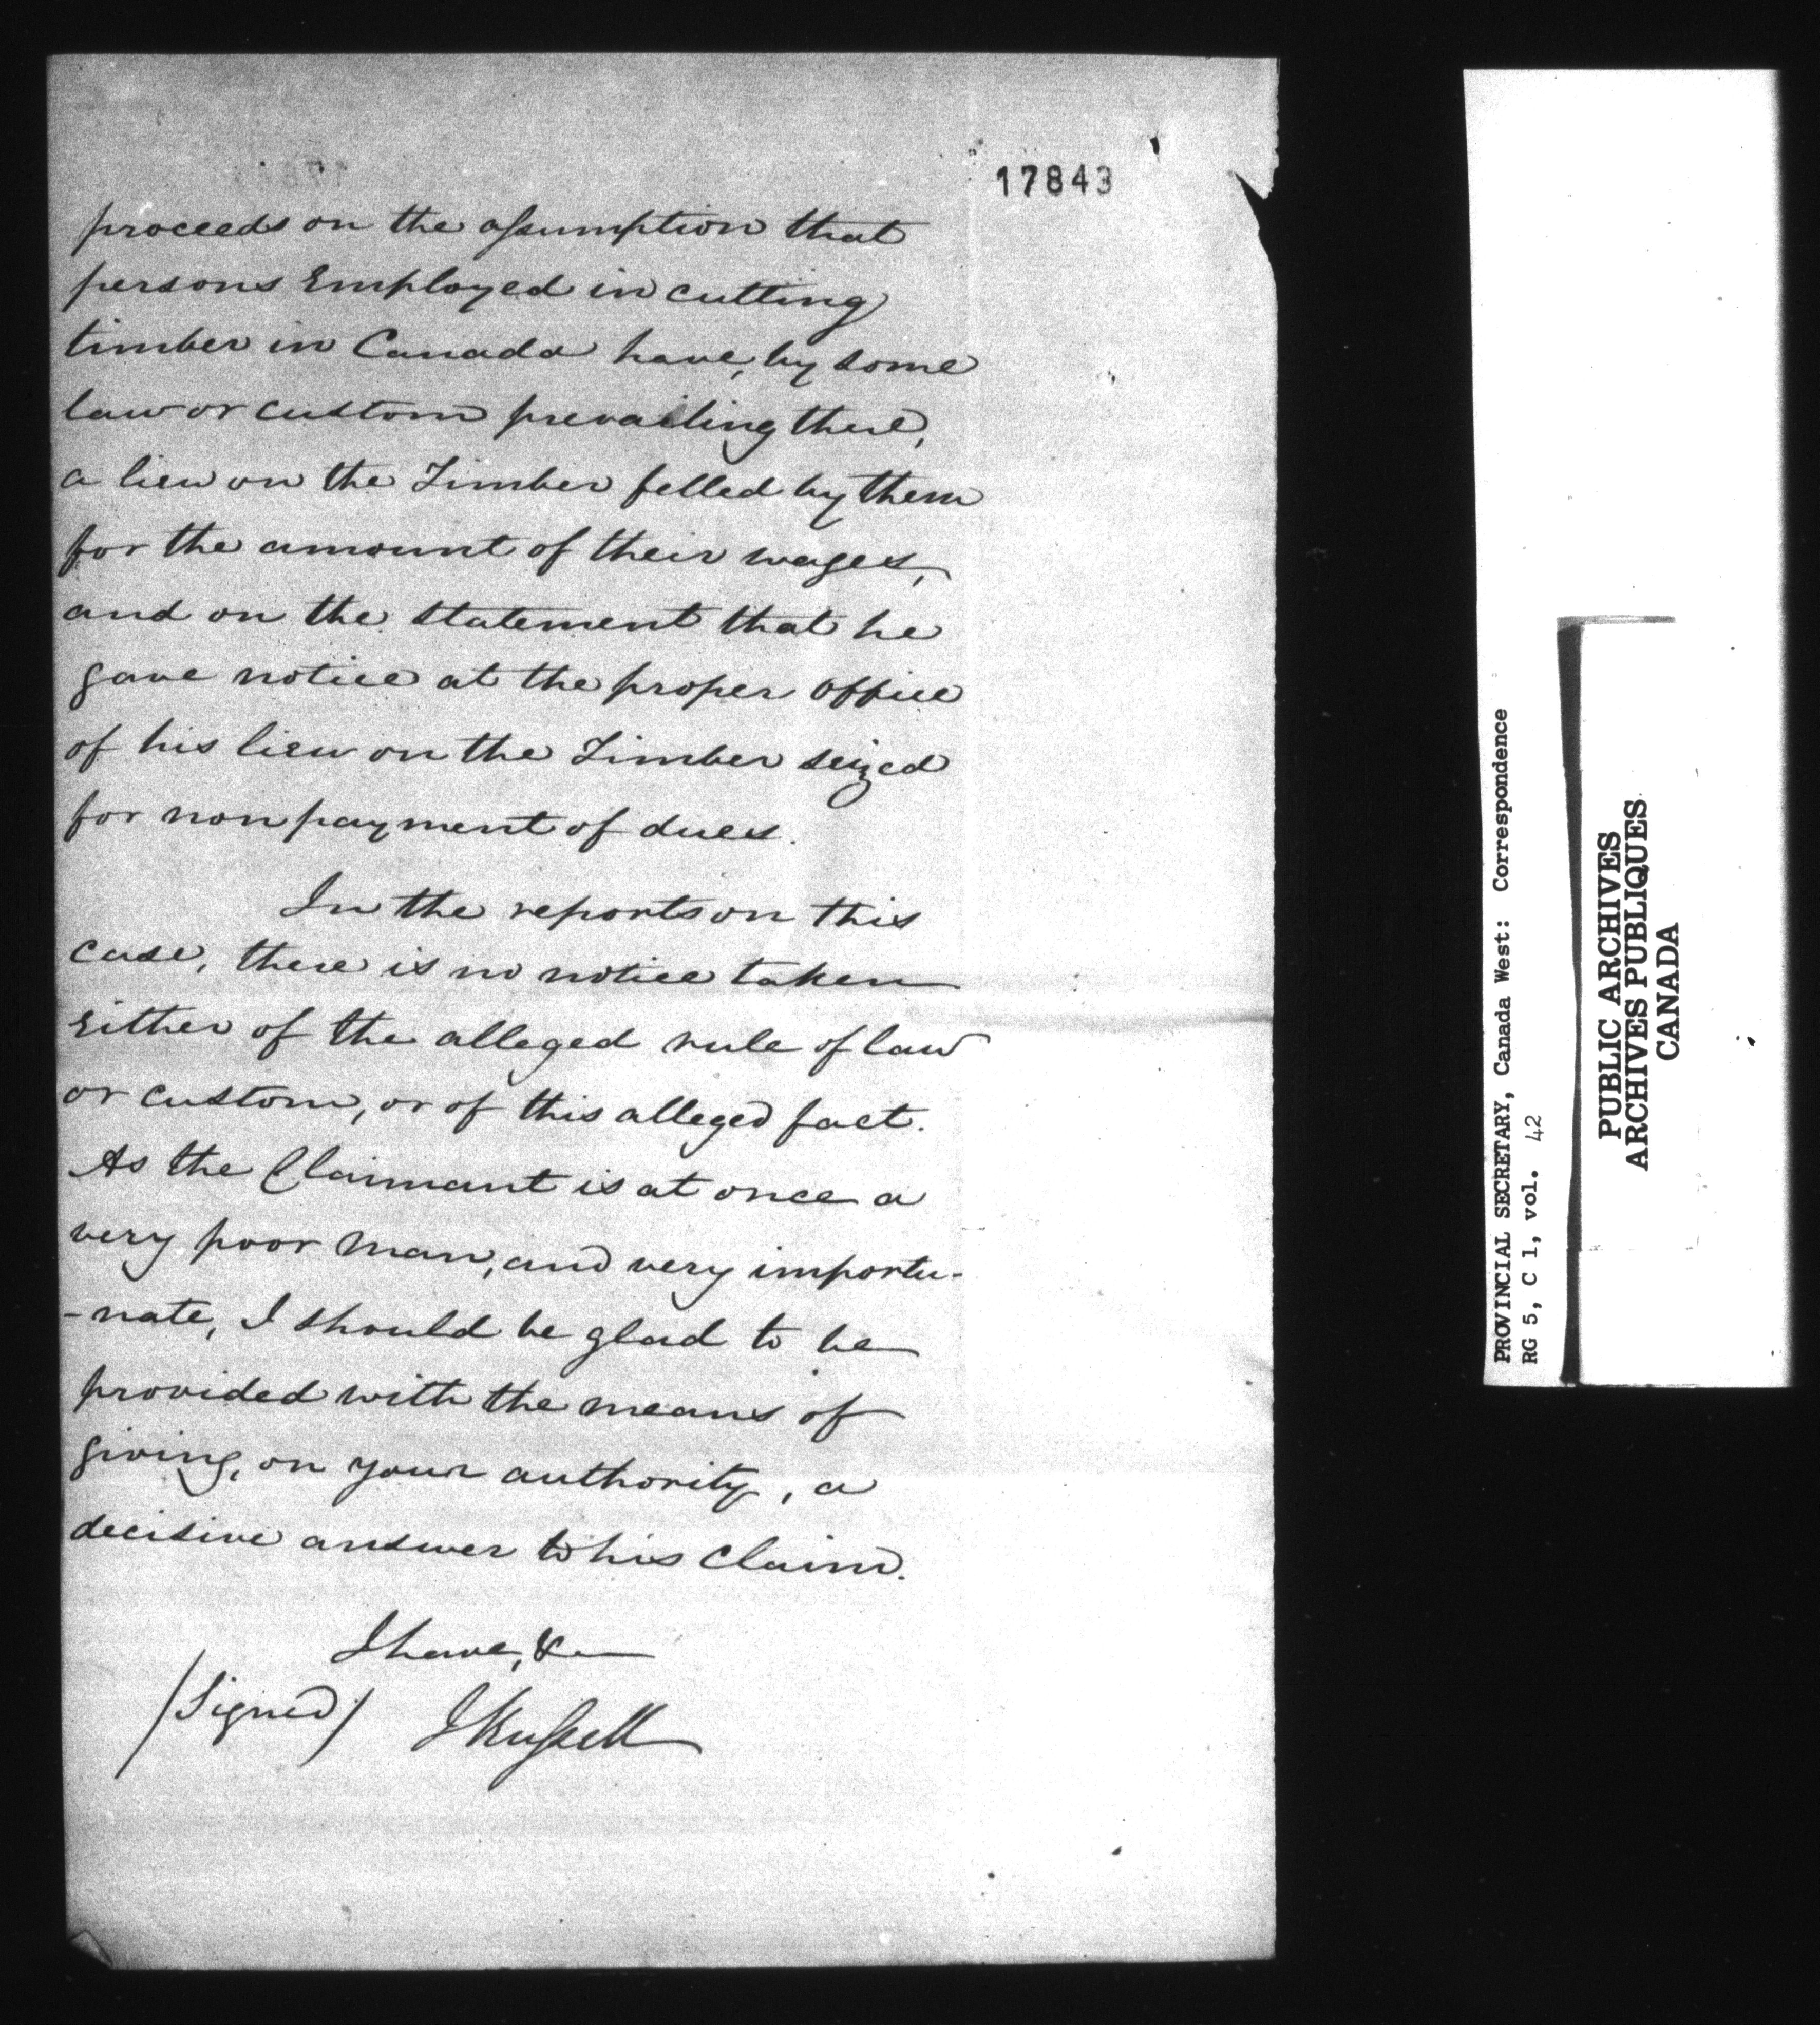 17843
proceeds on the assumption that
persons Employed in cutting
timber in Canada have, by some
law or custom prevailing there,
a lien on the Timber felled by them
for the amount of their wages,
and on the statement that he
gave notice at the proper office
of his lien on the Timber seized
for non payment of dues.
In the reports on this
case, there is no notice taken
Either of the alleged rule of law
or custom, or of this alleged fact.
As the Claimant is at once a
very poor man, and very importu-
-nate, I should be glad to be
provided with the means of
giving, on your authority, a
decisive answer to his Claim.
I have, &c
/Signed/ J Russell
PROVINCIAL SECRETARY, Canada West: Correspondence
RG 5, C 1, vol. 42
PUBLIC ARCHIVES
ARCHIVES PUBLIQUES
CANADA